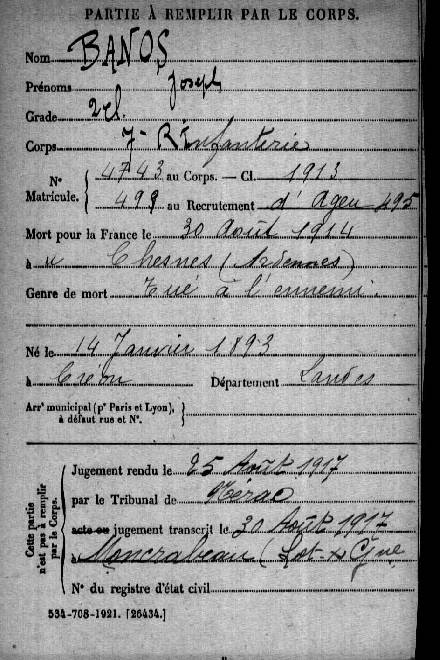 PARTIE À REMPLIR PAR LE CORPS.
Nom BANOS
Prénoms Joseph
Grade 2 cl.
Corps 7e Rt Infanterie
N° Matricule. { 4743 au Corps. — Cl. 1913
499 au Recrutement d'Agen 495
Mort pour la France le 30 Août 1914
à Chesnes (Ardennes)
Genre de mort Tué à l'ennemi.
Né le 14 Janvier 1893
à Créon Département Landes
Arr' municipal (p' Paris et Lyon), à défaut rue et N°. }
Cette partie n'est pas à remplir par le Corps.
Jugement rendu le 25 Août 1917
par le Tribunal de Nérac
acte ou jugement transcrit le 30 Août 1917
à Moncrabeau (Lot & Gne
N° du registre d'état civil
534-708-1921. [26434.]